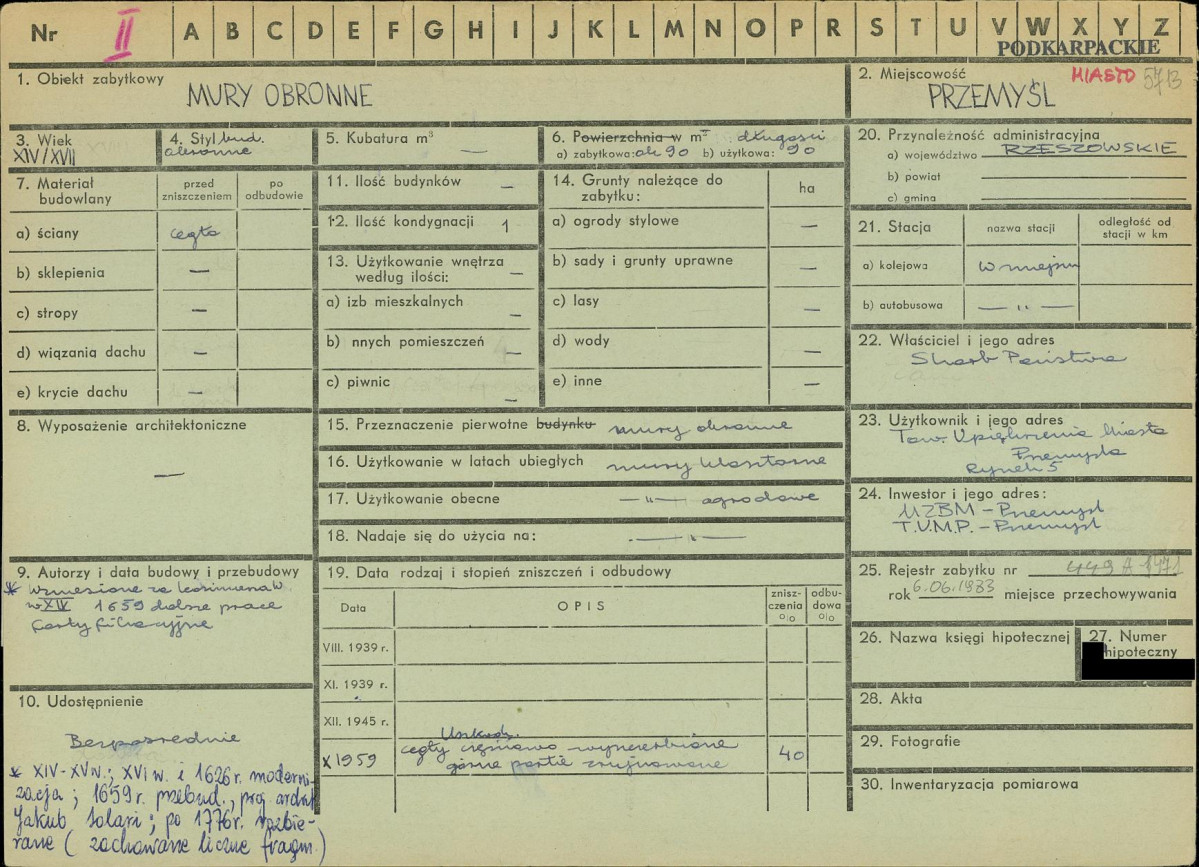 Nr II A B C D E F G H I J K L M N O P R S T U V W X Y Z
PODKARPACKIE
1. Obiekt zabytkowy
MURY OBRONNE
2. Miejscowość MIASTO 5713
PRZEMYŚL
3. Wiek
XIV/XVII
4. Styl bud.
obronne
5. Kubatura m³ —
6. Powierzchnia w m² długości
a) zabytkowa: ok 90 b) użytkowa: 90
7. Materiał budowlany
przed zniszczeniem
po odbudowie
a) ściany cegła
b) sklepienia —
c) stropy —
d) wiązania dachu —
e) krycie dachu —
8. Wyposażenie architektoniczne
—
9. Autorzy i data budowy i przebudowy
* Wzniesione za Kazimierza W.
w XIV 1659 dalsze prace
fortyfikacyjne
10. Udostępnienie
Bezpośrednie
* XIV-XV w.; XVI w. i 1626 r. moderni-
zacja; 1659 r. przebud., proj. archit.
Jakub Solari; po 1776 r. rozbie-
rane (zachowane liczne fragm.)
11. Ilość budynków —
12. Ilość kondygnacji 1
13. Użytkowanie wnętrza
według ilości: —
a) izb mieszkalnych —
b) nnych pomieszczeń —
c) piwnic —
14. Grunty należące do
zabytku:
ha
a) ogrody stylowe —
b) sady i grunty uprawne —
c) lasy —
d) wody —
e) inne —
15. Przeznaczenie pierwotne budynku mury obronne
16. Użytkowanie w latach ubiegłych mury klasztorne
17. Użytkowanie obecne —"— ogrodowe
18. Nadaje się do użycia na: —"—
19. Data rodzaj i stopień zniszczeń i odbudowy
Data
OPIS
znisz-
czenia
%
odbu-
dowa
%
VIII. 1939 r.
XI. 1939 r.
XII. 1945 r.
X 1959
Uszkodz.
cegły częściowo wyszczerbione
górne partie zrujnowane
40
20. Przynależność administracyjna
a) województwo RZESZOWSKIE
b) powiat
c) gmina
21. Stacja
nazwa stacji
odległość od
stacji w km
a) kolejowa w miejscu
b) autobusowa —"—
22. Właściciel i jego adres
Skarb Państwa
23. Użytkownik i jego adres
Tow. Upiększenia Miasta
Przemyśla
Rynek 5
24. Inwestor i jego adres:
MZBM – Przemyśl
T.U.M.P. – Przemyśl
25. Rejestr zabytku nr 449 A 1971
rok 6.06.1933 miejsce przechowywania
26. Nazwa księgi hipotecznej
27. Numer
hipoteczny
28. Akta
29. Fotografie
30. Inwentaryzacja pomiarowa